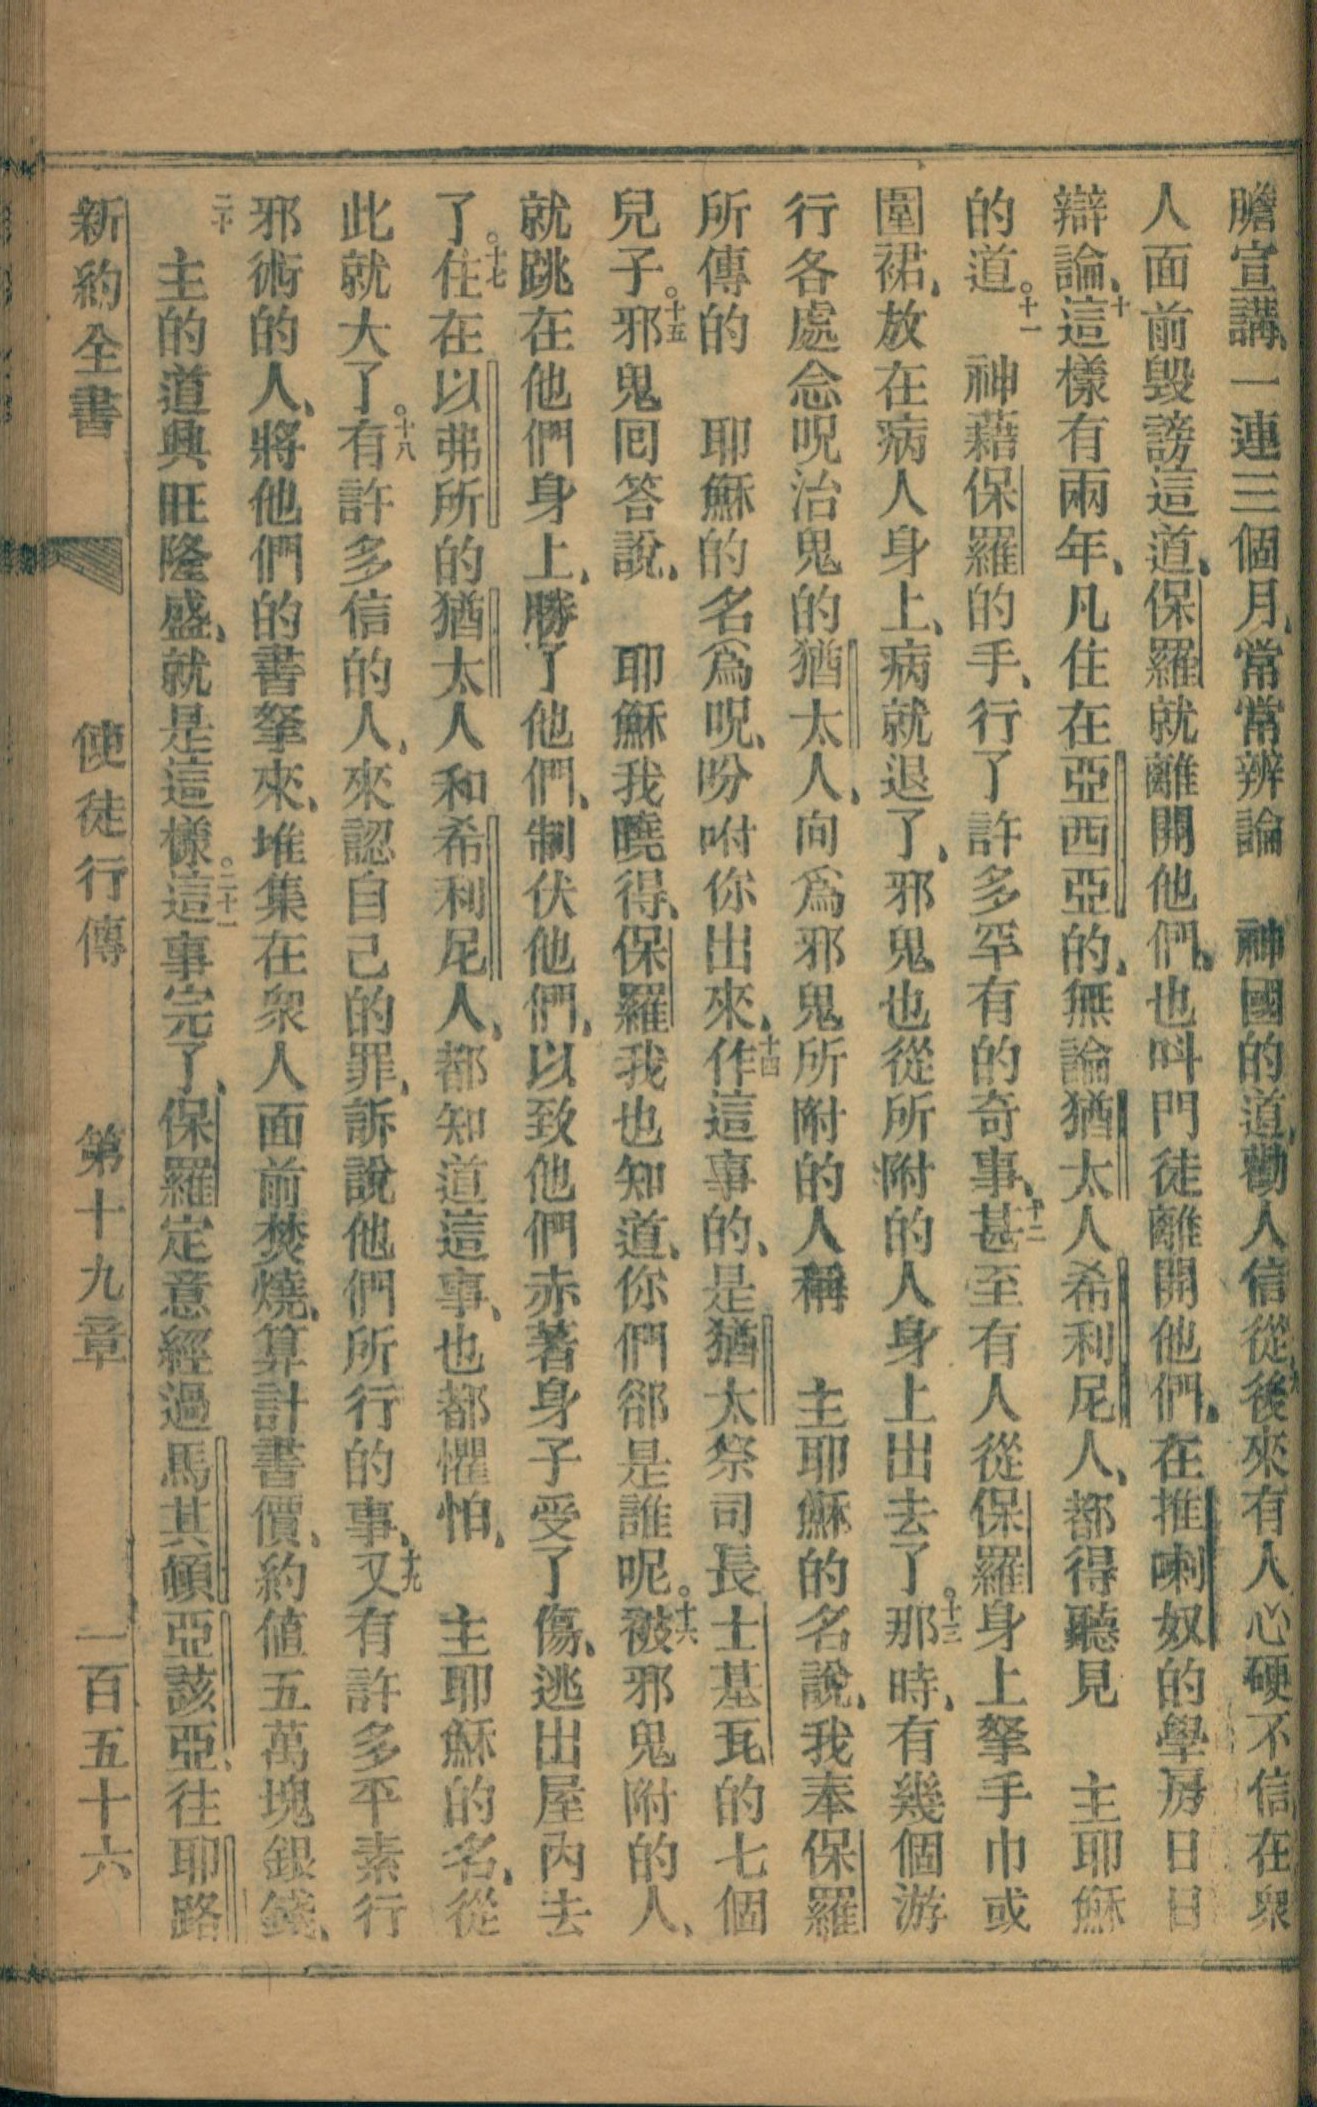 膽宣講、一連三個月、常常辨論　神國的道、勸人信從、九後來有人心硬不信、在衆
人面前毀謗這道、保羅就離開他們、也呌門徒離開他們、在推喇奴的學房日日
辯論、十這樣有兩年、凡住在亞西亞的、無論猶太人希利尼人、都得聽見　主耶穌
的道。十一　神藉保羅的手、行了許多罕有的奇事、十二甚至有人從保羅身上拏手巾或
圍裙、放在病人身上、病就退了、邪鬼也從所附的人身上出去了。十三那時、有幾個游
行各處念呪治鬼的猶太人、向爲邪鬼所附的人稱　主耶穌的名說、我奉保羅
所傳的　耶穌的名爲呪、吩咐你出來、十四作這事的、是猶太祭司長士基瓦的七個
兒子。十五邪鬼囘答說、　耶穌我曉得、保羅我也知道、你們卻是誰呢。十六被邪鬼附的人、
就跳在他們身上、勝了他們、制伏他們、以致他們赤著身子受了傷、逃出屋內去
了。十七住在以弗所的猶太人和希利尼人、都知道這事、也都懼怕、　主耶穌的名、從
此就大了。十八有許多信的人、來認自己的罪、訴說他們所行的事、十九又有許多平素行
邪術的人、將他們的書拏來、堆集在衆人面前焚燒、算計書價、約値五萬塊銀錢、
二十　主的道興旺隆盛、就是這樣。二十一這事完了、保羅定意經過馬其頓亞該亞、往耶路
新約全書　使徒行傳　第十九章　一百五十六